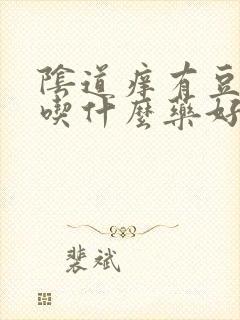 陰道痒有豆
喫什麼藥好
裴斌